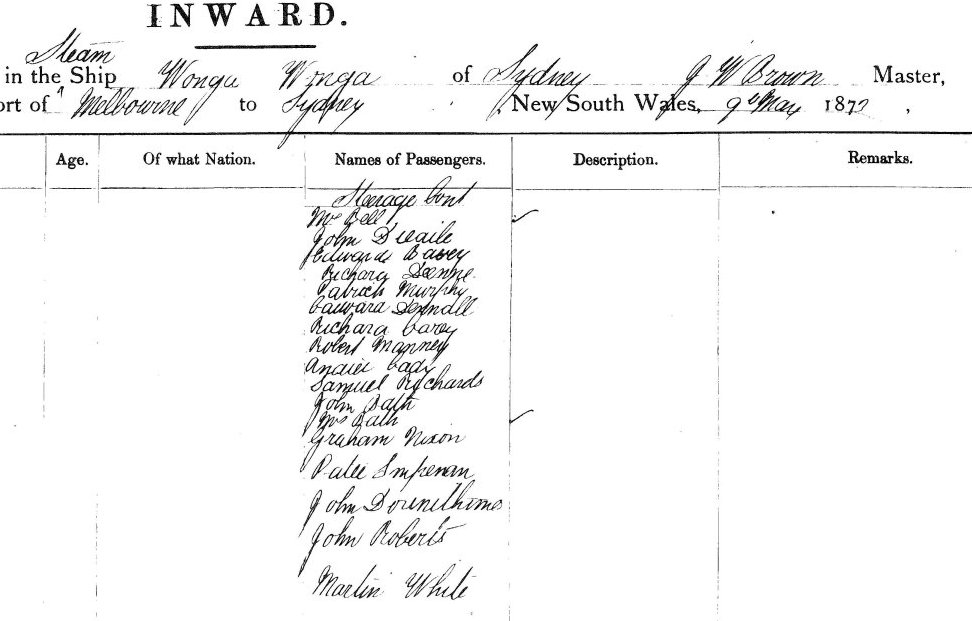 INWARD.
Steam
in the Ship Wonga Wonga of Sydney J W Brown Master,
ort of Melbourne to Sydney New South Wales, 9th May 1872
Age. Of what Nation. Names of Passengers. Description. Remarks.
Steerage Cont
Mrs Bell
John
Edward
Richard Denne
Patrick Murphy
Richard Carey
Robert Manney
Samuel Richards
John Bath
Mrs Bath
Graham Nixon
John
John Roberts
Martin White